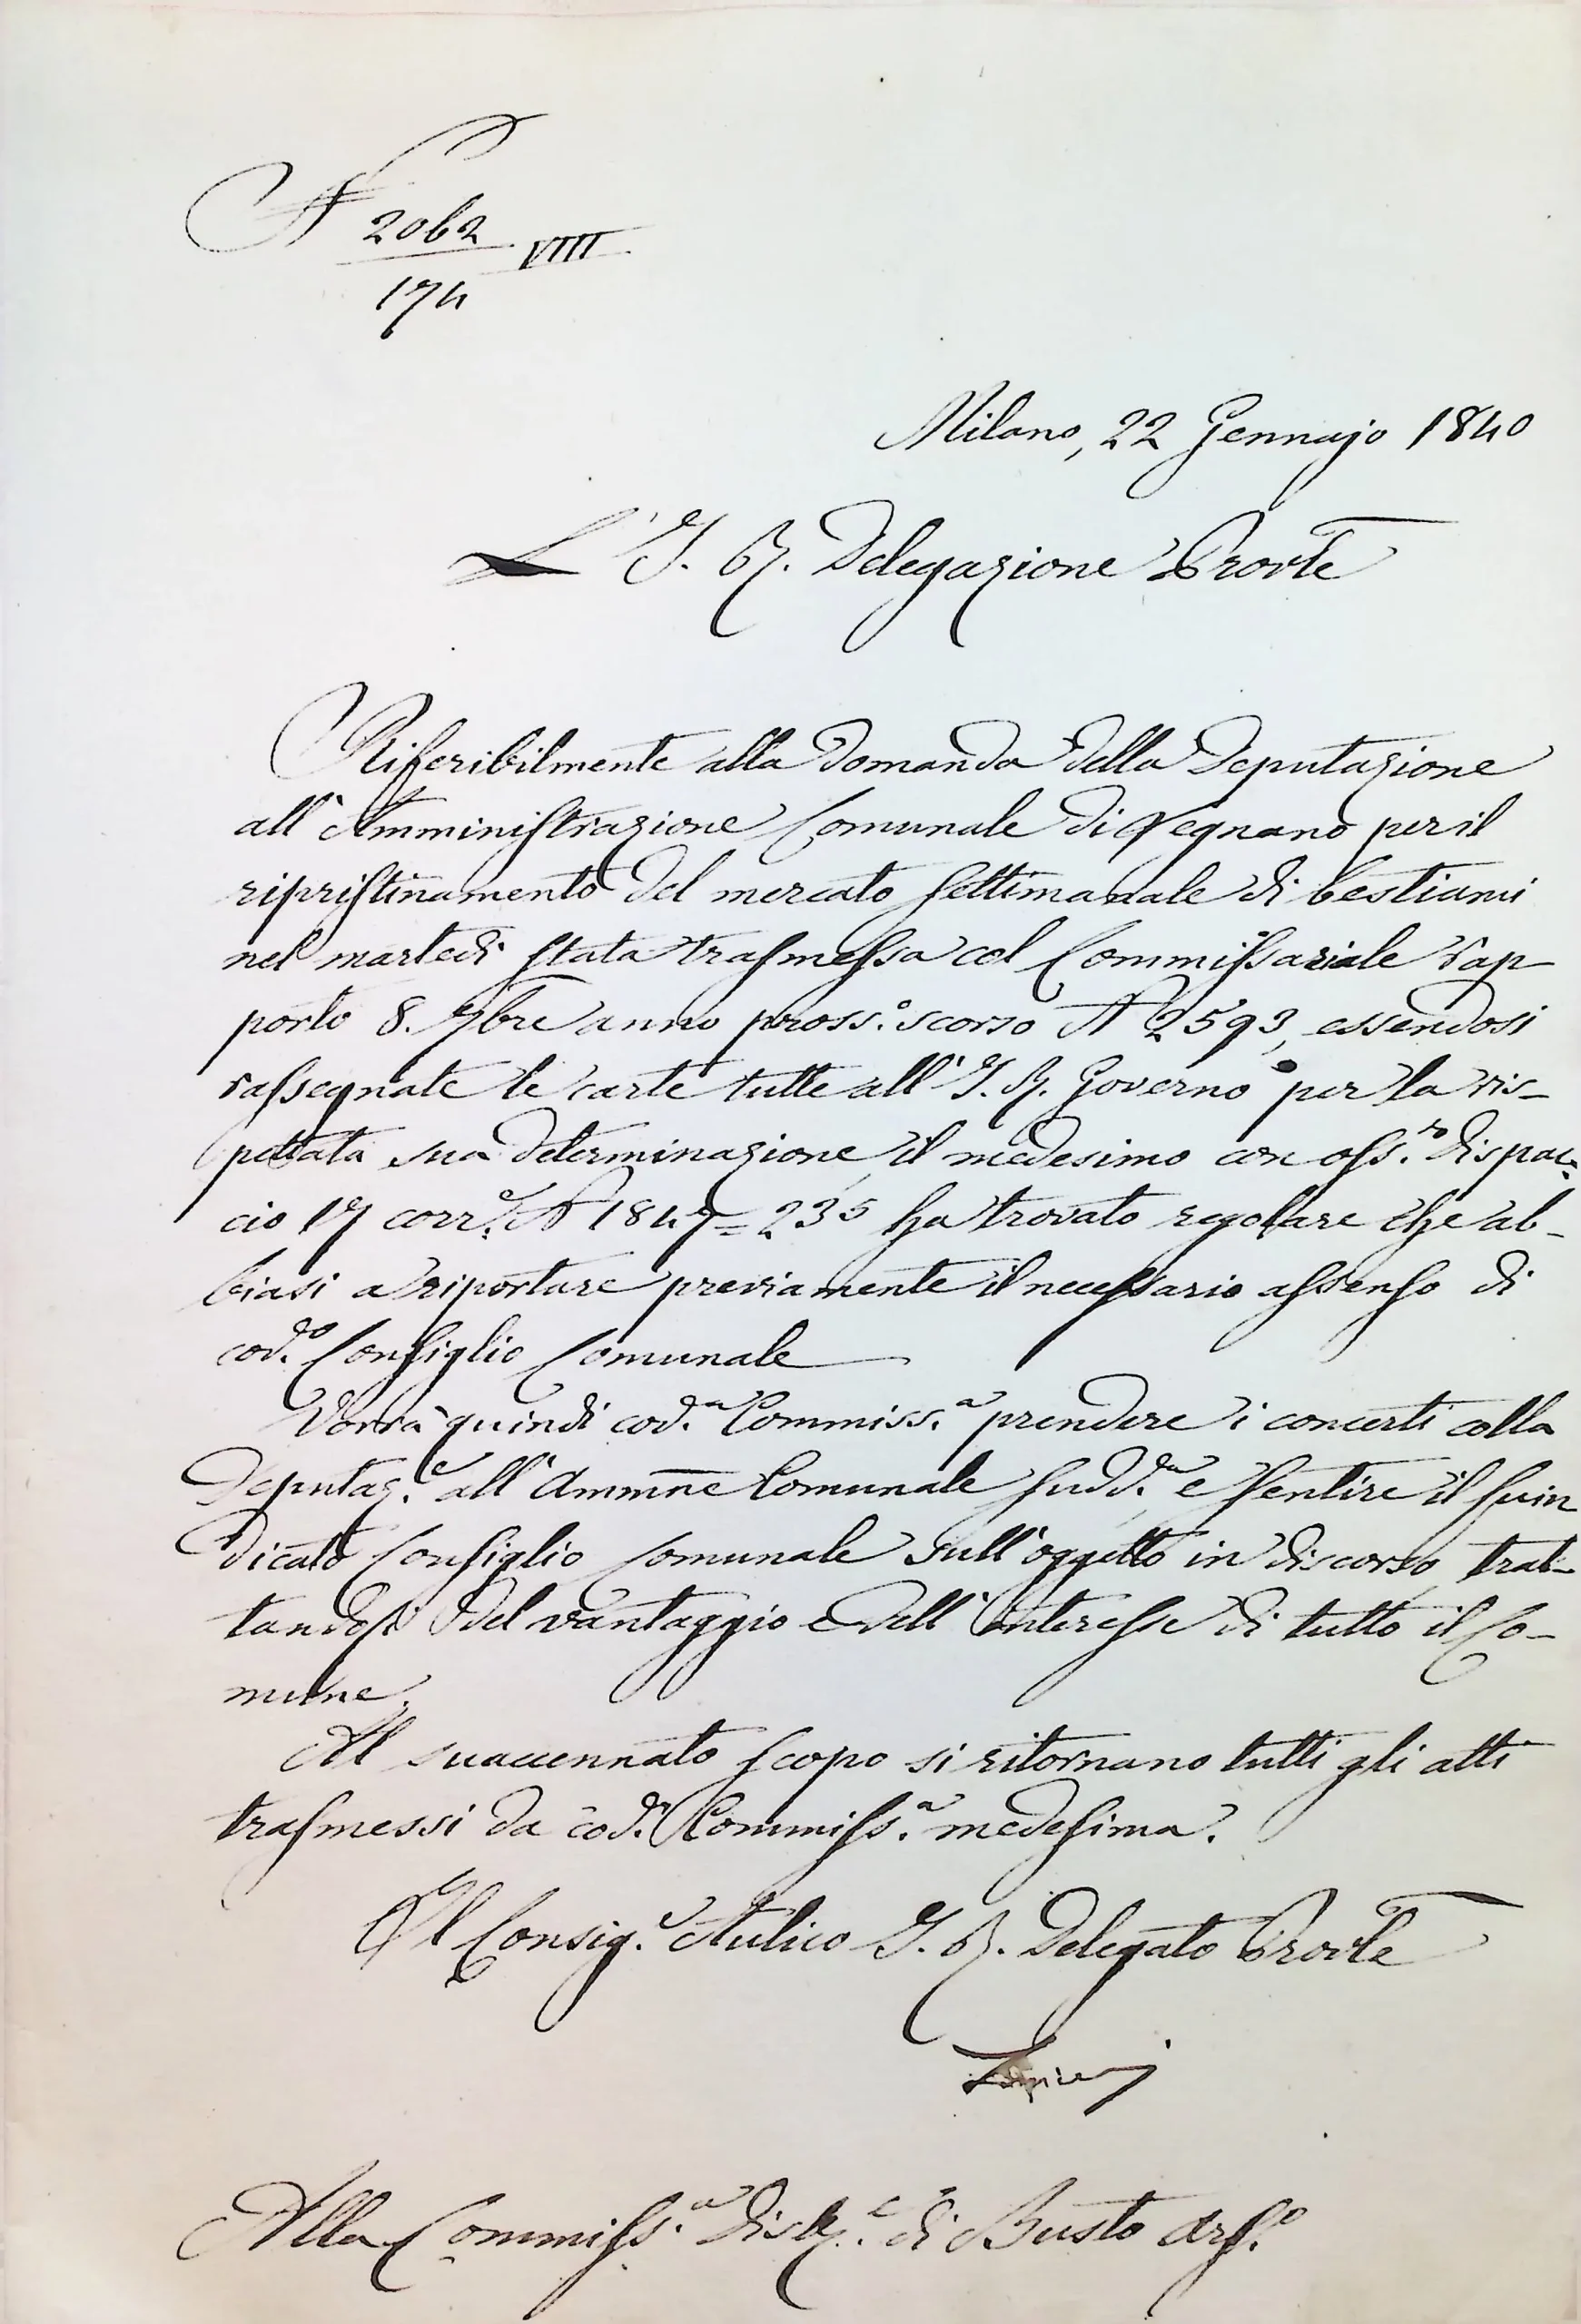 N 2062 VIIII
174
Milano, 22 Gennajo 1840
L' I. R. Delegazione Provle
Riferibilmente alla domanda della Deputazione
all'Amministrazione Comunale di Legnano per il
ripristinamento del mercato settimanale di bestiami
nel martedì stata trasmessa col Commissariale rap-
porto 8. 9bre anno pross.o scorso N 2593, essendosi
rassegnate le carte tutte all' I. R. Governo per la ris-
pettata sua determinazione, il medesimo con oss.to dispac-
cio 17 corr.e N 1847=235 ha trovato regolare che ab-
biasi a riportare previamente il necessario assenso di
cod.o Consiglio Comunale
Vorrà quindi cod.a Commiss.a prendere i concerti colla
Deputaz.e all'Ammne Comunale sudd.a e sentire il suin
dicato Consiglio Comunale sull'oggetto in discorso trat-
tandosi del vantaggio e dell'interesse di tutto il Co-
mune.
Al suaccennato scopo si ritornano tutti gli atti
trasmessi da cod.a Commiss.a medesima.
Il Consig.e Aulico I. R. Delegato Provle
Alla Commiss.a Distr.e di Busto Ars.o